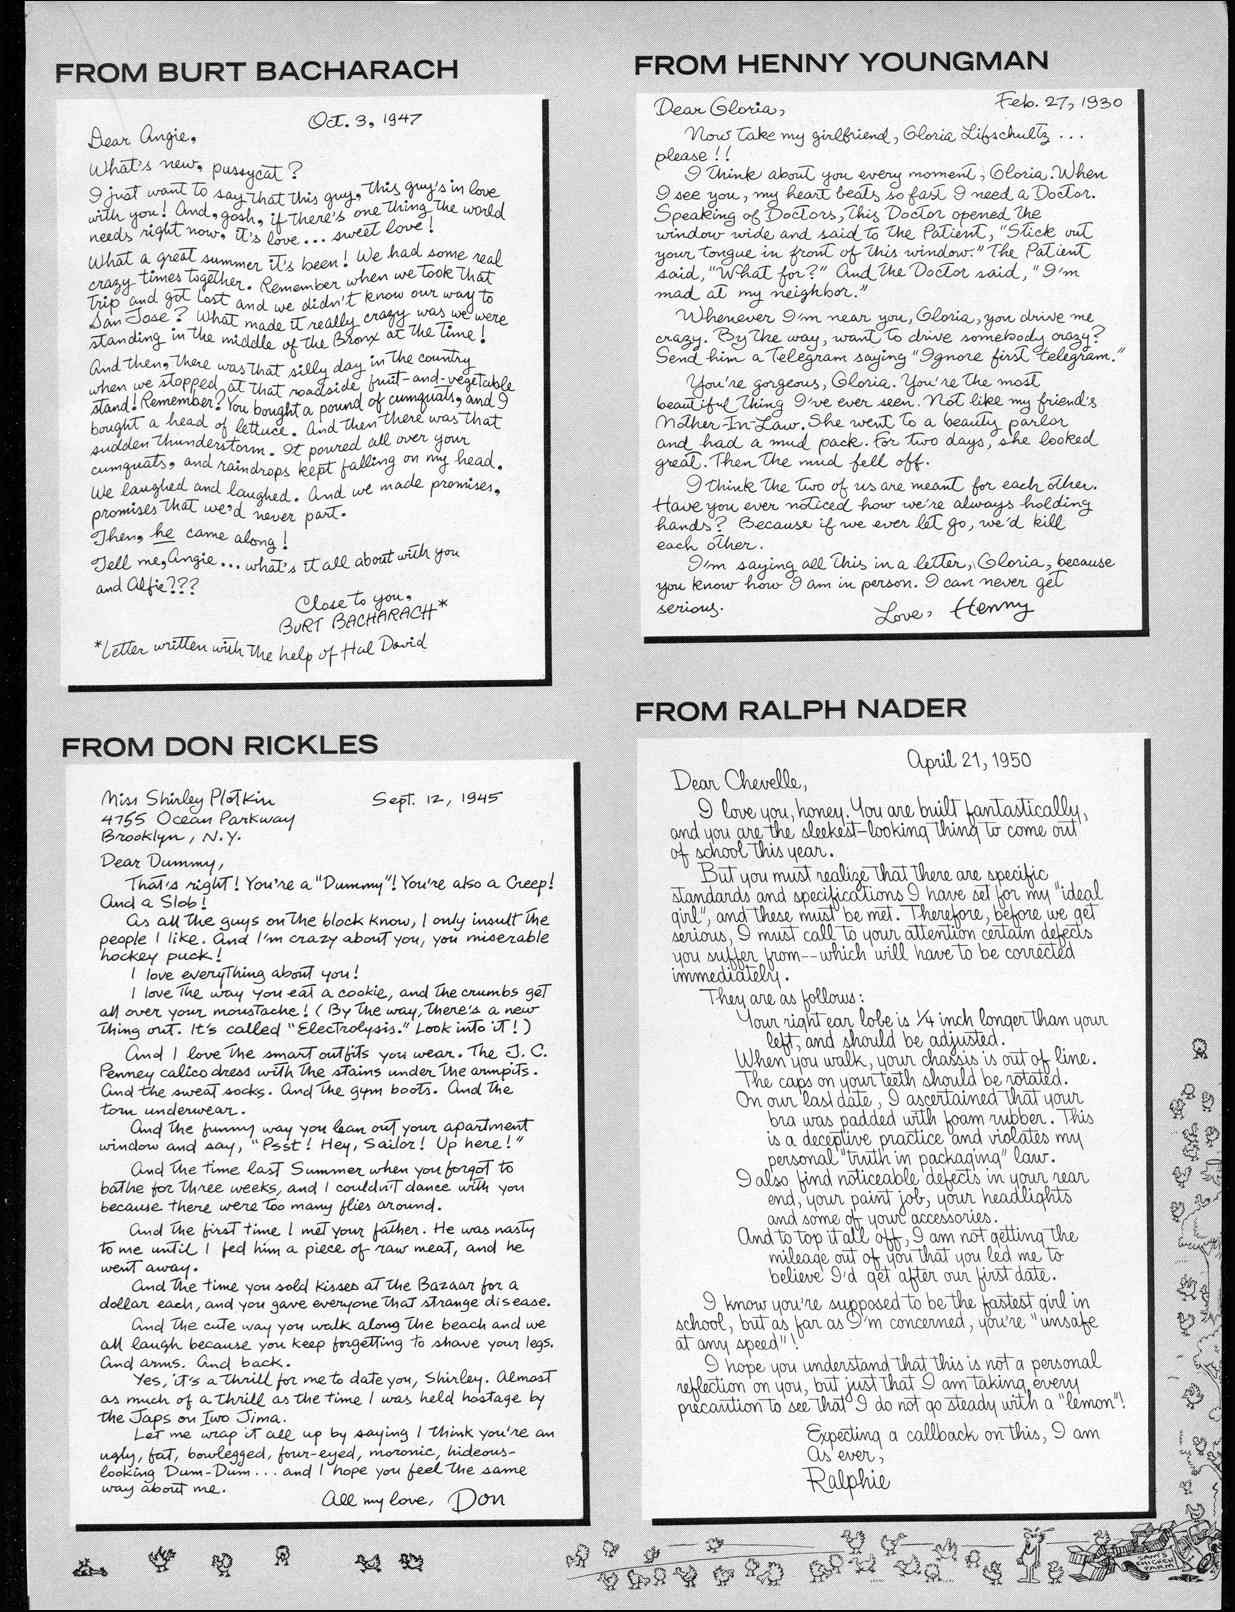 FROM BURT BACHARACH
Oct. 3, 1947
Dear Angie,
What's new, pussycat?
I just want to say that this guy, this guy's in love
with you! And, gosh, if there's one thing the world
needs right now, it's love... sweet love!
What a great summer it's been! We had some real
crazy times together. Remember when we took that
trip and got lost and we didn't know our way to
San Jose? What made it really crazy was we were
standing in the middle of the Bronx at the time!
And then, there was that silly day in the country
when we stopped at that roadside fruit-and-vegetable
stand! Remember? You bought a pound of cumquats, and I
bought a head of lettuce. And then there was that
sudden thunderstorm. It poured all over your
cumquats, and raindrops kept falling on my head.
We laughed and laughed. And we made promises,
promises that we'd never part.
Then, he came along!
Tell me, Angie... what's it all about with you
and Alfie???
Close to you,
BURT BACHARACH*
*Letter written with the help of Hal David
FROM HENNY YOUNGMAN
Feb. 27, 1930
Dear Gloria,
Now take my girlfriend, Gloria Lifschultz ...
please!!
I think about you every moment, Gloria. When
I see you, my heart beats so fast I need a Doctor.
Speaking of Doctors, this Doctor opened the
window wide and said to the Patient, "Stick out
your tongue in front of this window." The Patient
said, "What for?" And the Doctor said, "I'm
mad at my neighbor."
Whenever I'm near you, Gloria, you drive me
crazy. By the way, want to drive somebody crazy?
Send him a Telegram saying "Ignore first telegram."
You're gorgeous, Gloria. You're the most
beautiful thing I've ever seen. Not like my friend's
Mother-In-Law. She went to a beauty parlor
and had a mud pack. For two days, she looked
great. Then the mud fell off.
I think the two of us are meant for each other.
Have you ever noticed how we're always holding
hands? Because if we ever let go, we'd kill
each other.
I'm saying all this in a letter, Gloria, because
you know how I am in person. I can never get
serious.
Love, Henny
FROM DON RICKLES
Miss Shirley Plotkin
Sept. 12, 1945
4755 Ocean Parkway
Brooklyn, N.Y.
Dear Dummy,
That's right! You're a "Dummy"! You're also a Creep!
And a Slob!
As all the guys on the block know, I only insult the
people I like. And I'm crazy about you, you miserable
hockey puck!
I love everything about you!
I love the way you eat a cookie, and the crumbs get
all over your moustache! (By the way, there's a new
thing out. It's called "Electrolysis." Look into it!)
And I love the smart outfits you wear. The J.C.
Penney calico dress with the stains under the armpits.
And the sweat socks. And the gym boots. And the
torn underwear.
And the funny way you lean out your apartment
window and say, "Psst! Hey, Sailor! Up here!"
And the time last Summer when you forgot to
bathe for three weeks, and I couldn't dance with you
because there were too many flies around.
And the first time I met your father. He was nasty
to me until I fed him a piece of raw meat, and he
went away.
And the time you sold kisses at the Bazaar for a
dollar each, and you gave everyone that strange disease.
And the cute way you walk along the beach and we
all laugh because you keep forgetting to shave your legs.
And arms. And back.
Yes, it's a thrill for me to date you, Shirley. Almost
as much of a thrill as the time I was held hostage by
the Japs on Iwo Jima.
Let me wrap it all up by saying I think you're an
ugly, fat, bowlegged, four-eyed, moronic, hideous-
looking Dum-Dum... and I hope you feel the same
way about me.
All my love, Don
FROM RALPH NADER
April 21, 1950
Dear Chevelle,
I love you, honey. You are built fantastically,
and you are the sleekest-looking thing to come out
of school this year.
But you must realize that there are specific
standards and specifications I have set for my "ideal
girl", and these must be met. Therefore, before we get
serious, I must call to your attention certain defects
you suffer from--which will have to be corrected
immediately.
They are as follows:
Your right ear lobe is 1/4 inch longer than your
left, and should be adjusted.
When you walk, your chassis is out of line.
The caps on your teeth should be rotated.
On our last date, I ascertained that your
bra was padded with foam rubber. This
is a deceptive practice and violates my
personal "truth in packaging" law.
I also find noticeable defects in your rear
end, your paint job, your headlights
and some of your accessories.
And to top it all off, I am not getting the
mileage out of you that you led me to
believe I'd get after our first date.
I know you're supposed to be the fastest girl in
school, but as far as I'm concerned, you're "unsafe
at any speed"!
I hope you understand that this is not a personal
reflection on you, but just that I am taking every
precaution to see that I do not go steady with a "lemon"!
Expecting a callback on this, I am
As ever,
Ralphie
SAM'S
CHICKEN
FARM